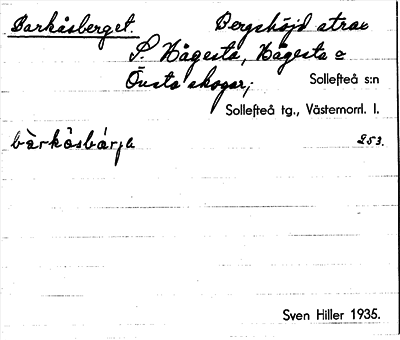 Barkåsberget. Bergshöjd å trax
S. Hågesta, Hågesta o
Önsta skogar; Sollefteå s:n
Sollefteå tg., Västernorrl. l.
bàrkåsbárja 253.
Sven Hiller 1935.